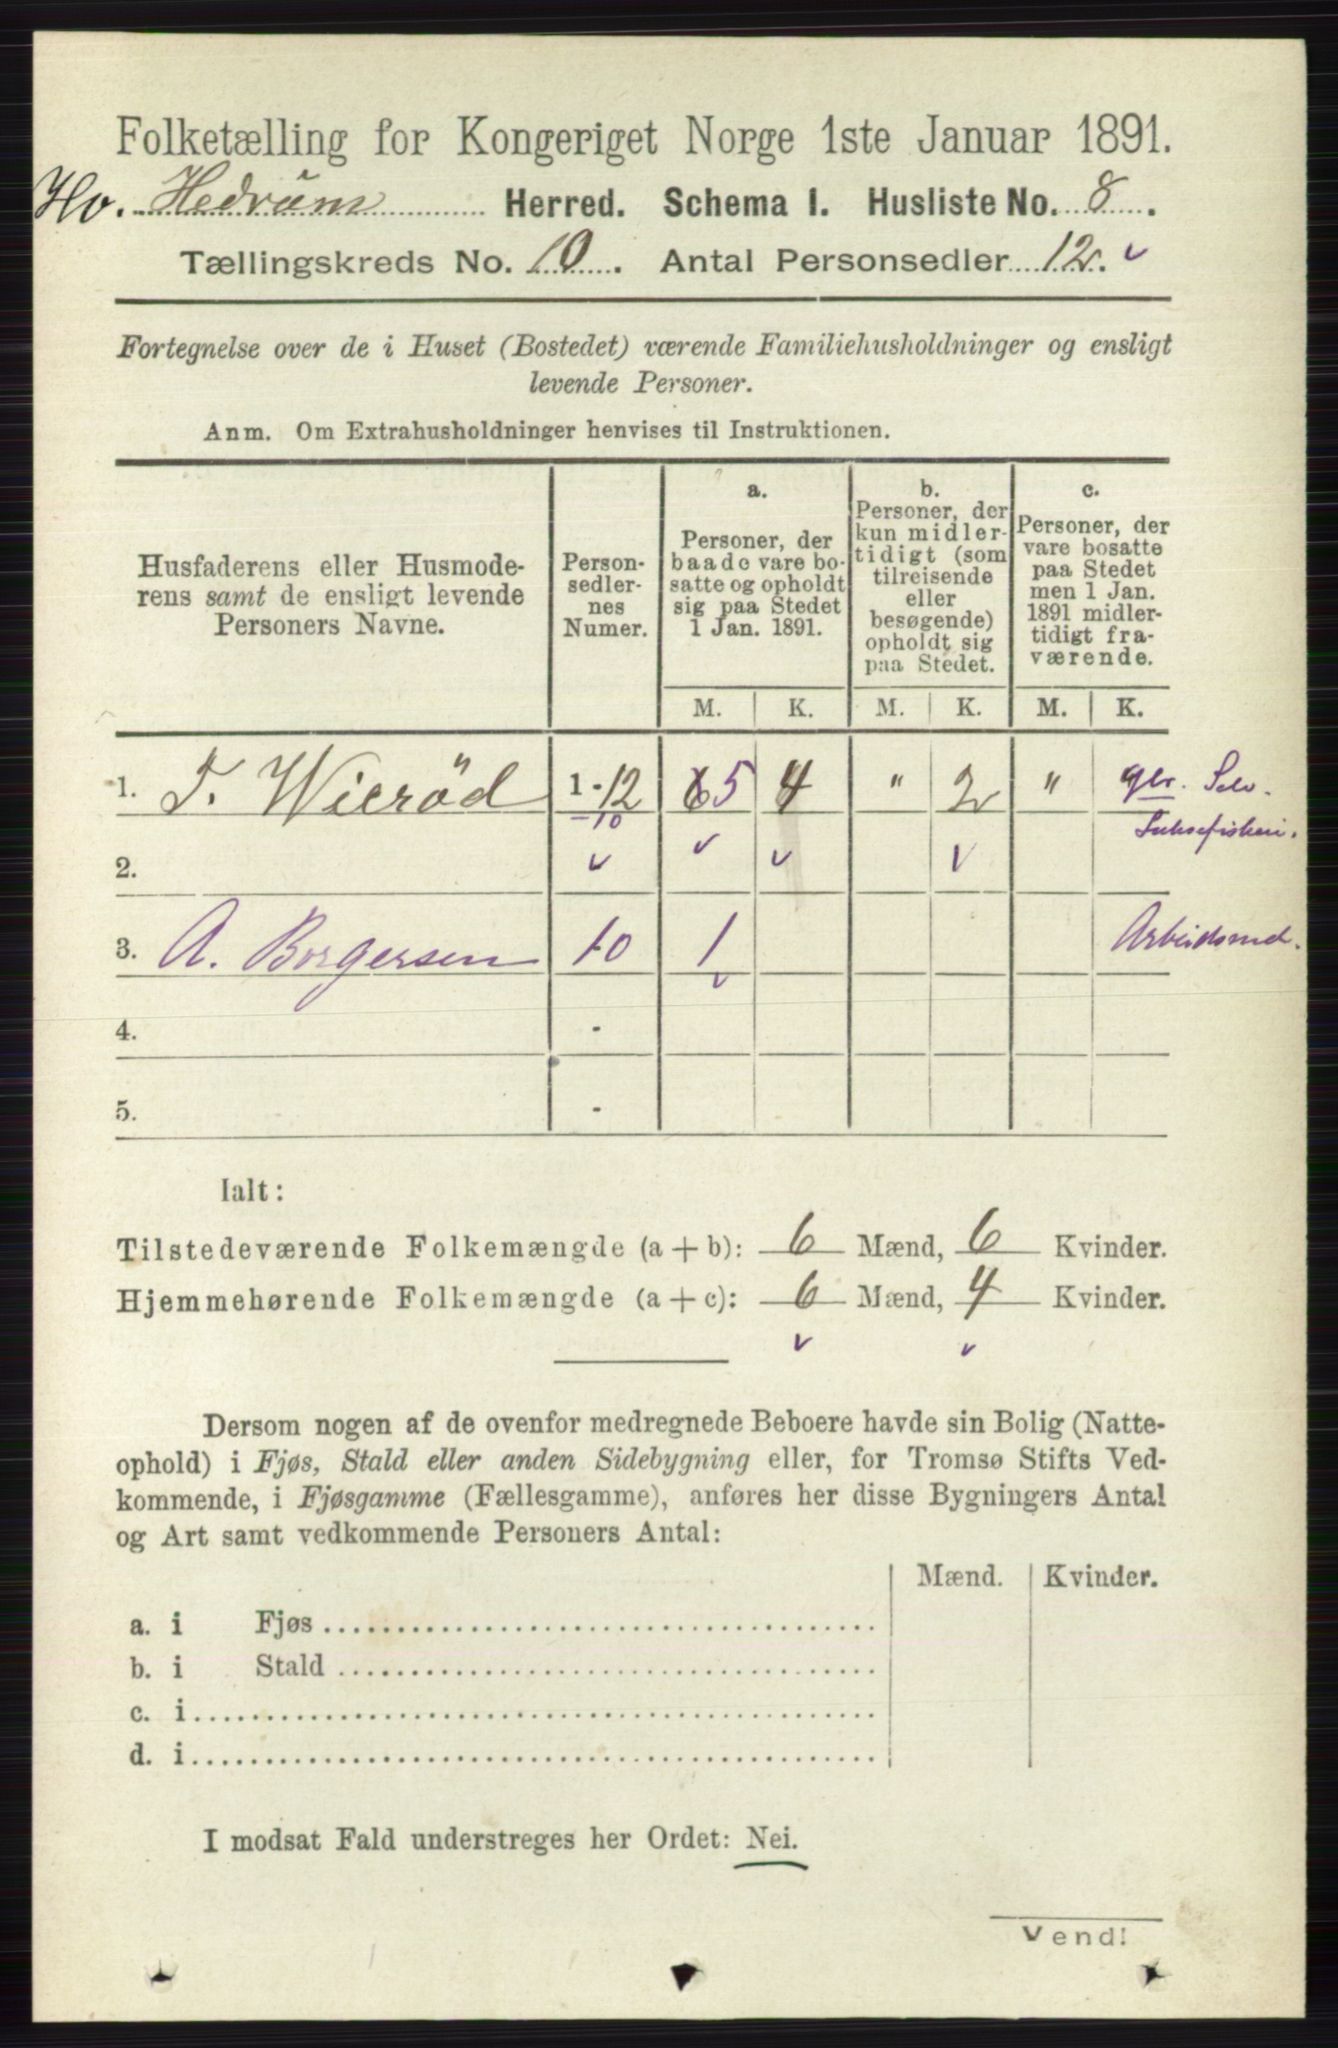 Folketælling for Kongeriget Norge 1ste Januar 1891.
Hv. Hedrum Herred. Schema I. Husliste No. 8.
Tællingskreds No. 10. Antal Personsedler 12. v
Fortegnelse over de i Huset (Bostedet) værende Familiehusholdninger og ensligt
levende Personer.
Anm. Om Extrahusholdninger henvises til Instruktionen.
Husfaderens eller Husmode-
rens samt de ensligt levende
Personers Navne.
Person-
sedler-
nes
Numer.
a.
Personer, der
baade vare bo-
satte og opholdt
sig paa Stedet
1 Jan. 1891.
b.
Personer, der
kun midler-
tidigt (som
tilreisende
eller
besøgende)
opholdt sig
paa Stedet.
c.
Personer, der
vare bosatte
paa Stedet
men 1 Jan.
1891 midler-
tidigt fra-
værende.
M. K. M. K. M. K.
1. T. Wierød 1-12 6 5 4 " 2 " glr. Selv.
-10
v v v v
2.
3. A. Borgersen 10 1 Arbeidsmd.
v
4. -
5. -
Ialt:
Tilstedeværende Folkemængde (a + b): 6 Mænd, 6 Kvinder.
Hjemmehørende Folkemængde (a + c): 6 Mænd, 4 Kvinder.
v v
Dersom nogen af de ovenfor medregnede Beboere havde sin Bolig (Natte-
ophold) i Fjøs, Stald eller anden Sidebygning eller, for Tromsø Stifts Ved-
kommende, i Fjøsgamme (Fællesgamme), anføres her disse Bygningers Antal
og Art samt vedkommende Personers Antal:
Mænd. Kvinder.
a. i Fjøs
b. i Stald
c. i
d. i
I modsat Fald understreges her Ordet: Nei.
Vend!